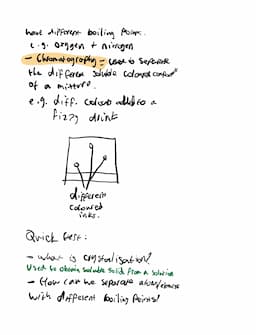 have different boiling points.
e.g. oxygen + nitrogen
- Chromatography - used to separate
the different soluble coloured
of a mixture.
e.g. diff. colours added to a
fizzy drink
different
coloured
inks.
Quick test:
- what is crystallisation?
Used to obtain soluble solid from a solution
- How can we separate
with different boiling points?